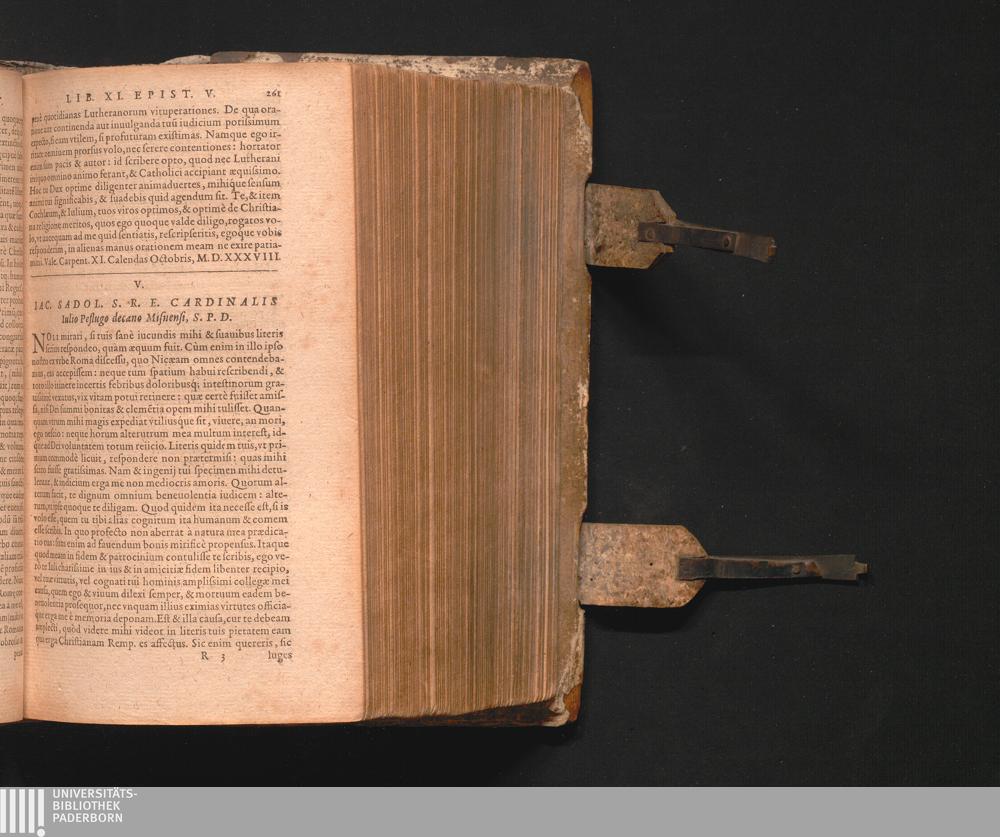 LIB. XI. EPIST. V. 261
penè quotidianas Lutheranorum vituperationes. De qua ora-
tione aut continenda aut inuulganda tuū iudicium potissimum
expecto, si eam vtilem, si profuturam existimas. Namque ego ir-
ritare neminem prorsus volo, nec serere contentiones: hortator
enim sum pacis & autor: id scribere opto, quod nec Lutherani
iniquo omnino animo ferant, & Catholici accipiant æquissimo.
Hoc tu Dux optime diligenter animaduertes, mihique sensum
animi tui significabis, & suadebis quid agendum sit. Te, & item
Cochlæum, & Iulium, tuos viros optimos, & optimè de Christia-
na religione meritos, quos ego quoque valde diligo, rogatos vo-
lo, vt antequam ad me quid sentiatis, rescripseritis, egoque vobis
responderim, in alienas manus orationem meam ne exire patia-
mini. Vale. Carpent. XI. Calendas Octobris, M.D.XXXVIII.
V.
IAC. SADOL. S. R. E. CARDINALIS
Iulio Peslugo decano Misnensi, S. P. D.
NOLI mirari, si tuis sanè iucundis mihi & suauibus literis
seriùs respondeo, quàm æquum fuit. Cùm enim in illo ipso
nostro ex vrbe Roma discessu, quo Nicæam omnes contendeba-
mus, eas accepissem: neque tum spatium habui rescribendi, &
toto illo itinere incertis febribus doloribusq; intestinorum gra-
uissimè vexatus, vix vitam potui retinere: quæ certè fuisset amis-
sa, nisi Dei summi bonitas & clemētia opem mihi tulisset. Quan-
quam vtrum mihi magis expediat vtiliusque sit, viuere, an mori,
ego nescio: neque horum alterutrum mea multum interest, id-
que ad Dei voluntatem totum reiicio. Literis quidem tuis, vt pri-
mum commodè licuit, respondere non prætermisi: quas mihi
scito fuisse gratissimas. Nam & ingenij tui specimen mihi detu-
lerunt, & indicium erga me non mediocris amoris. Quorum al-
terum facit, te dignum omnium beneuolentia iudicem: alte-
rum, vt ipse quoque te diligam. Quod quidem ita necesse est, si is
volo esse, quem tu tibi alias cognitum ita humanum & comem
esse scribis. In quo profecto non aberrat à natura mea prædica-
tio tua: sum enim ad fauendum bonis mirificè propensus. Itaque
quod meam in fidem & patrocinium contulisse te scribis, ego ve-
rò te Iuli charissime in ius & in amicitiæ fidem libenter recipio,
vel tuæ virtutis, vel cognati tui hominis amplissimi collegæ mei
causa, quem ego & viuum dilexi semper, & mortuum eadem be-
neuolentia prosequor, nec vnquam illius eximias virtutes officia-
que erga me è memoria deponam. Est & illa causa, cur te debeam
amplecti, quòd videre mihi videor in literis tuis pietatem eam
qua erga Christianam Remp. es affectus. Sic enim quereris, sic
R 3 luges
UNIVERSITÄTS-
BIBLIOTHEK
PADERBORN